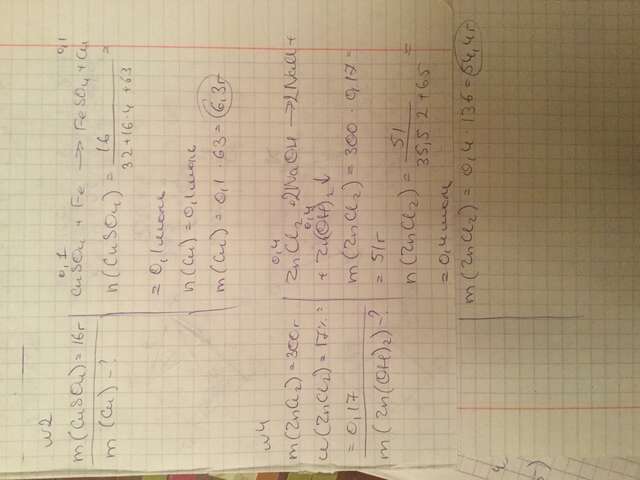 №2
m(CuSO₄) = 16г
m(Cu) - ?
0,1 0,1
CuSO₄ + Fe → FeSO₄ + Cu
n(CuSO₄) = 16 / 32+16·4+63 =
= 0,1моль
n(Cu) = 0,1моль
m(Cu) = 0,1 · 63 = 6,3г
№4
m(ZnCl₂) = 300г
ω(ZnCl₂) = 17% =
= 0,17
m(Zn(OH)₂) - ?
0,4
ZnCl₂ + 2NaOH → 2NaCl +
0,4
+ Zn(OH)₂↓
m(ZnCl₂) = 300 · 0,17 =
= 51г
n(ZnCl₂) = 51 / 35,5·2+65 =
= 0,4моль
m(ZnCl₂) = 0,4 · 136 = 54,4г